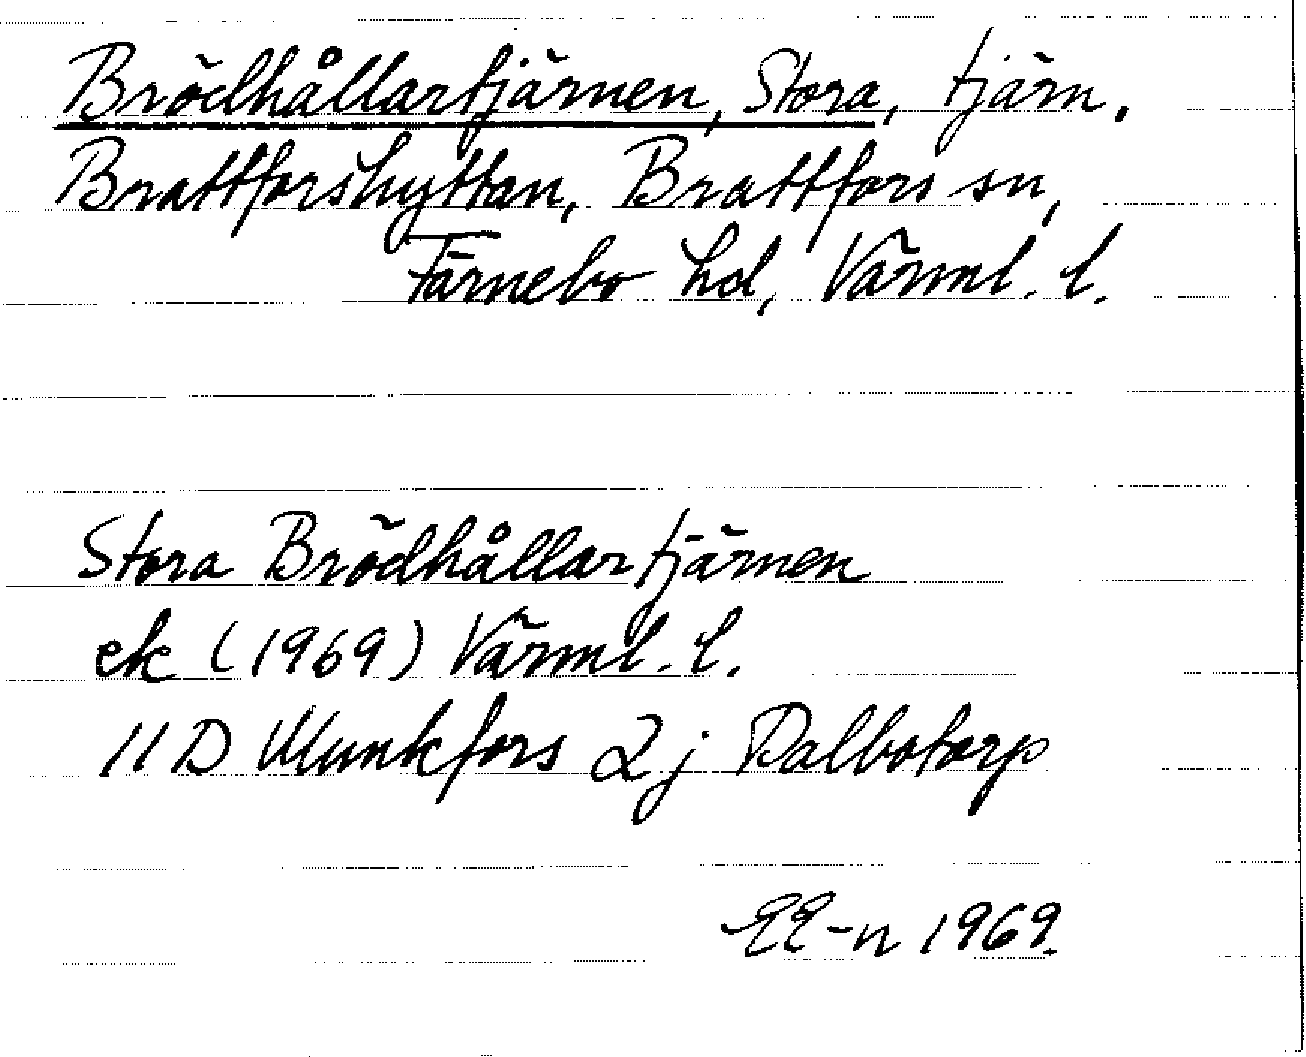 Brödhållartjärnen, Stora, tjärn.
Brattforshyttan, Brattfors sn,
Färnebo hd, Värml. l.
Stora Brödhållartjärnen
ek (1969) Värml. l.
11 D Munkfors 2 j Dalbotorp
EE-n 1969.